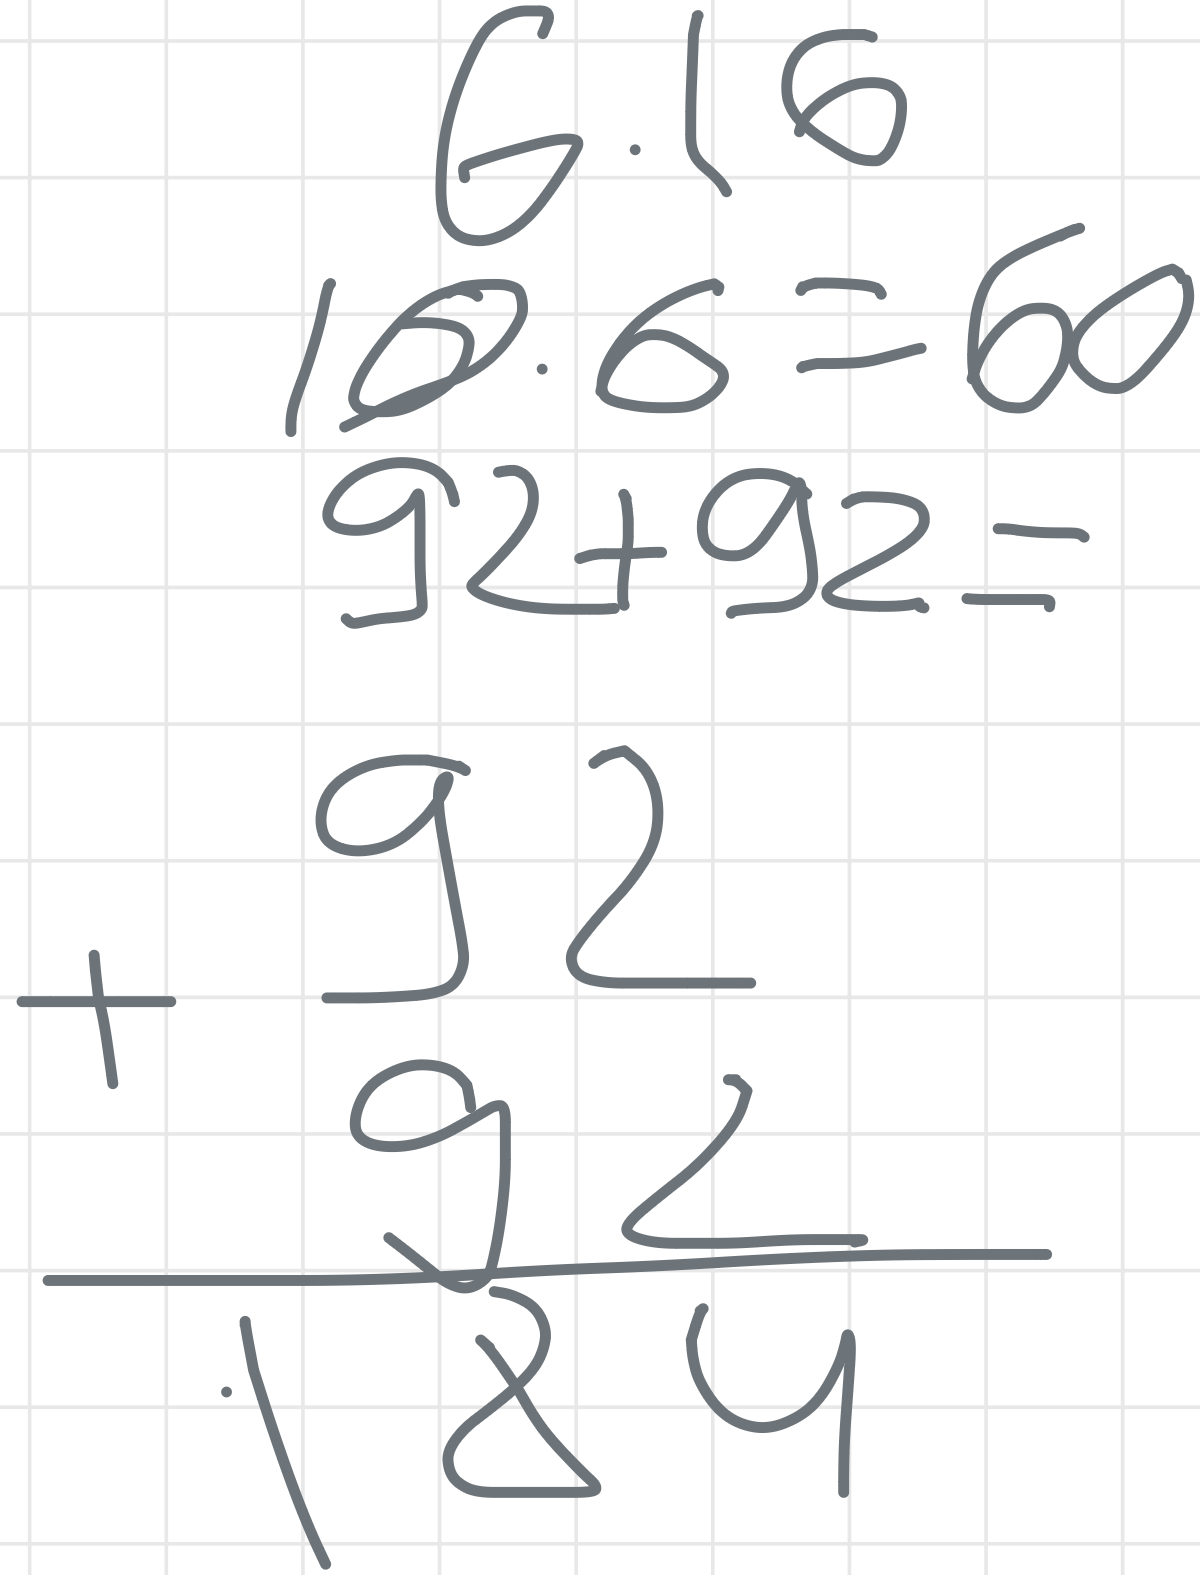 6.16
10.6=60
92+92=
92
+
92
184